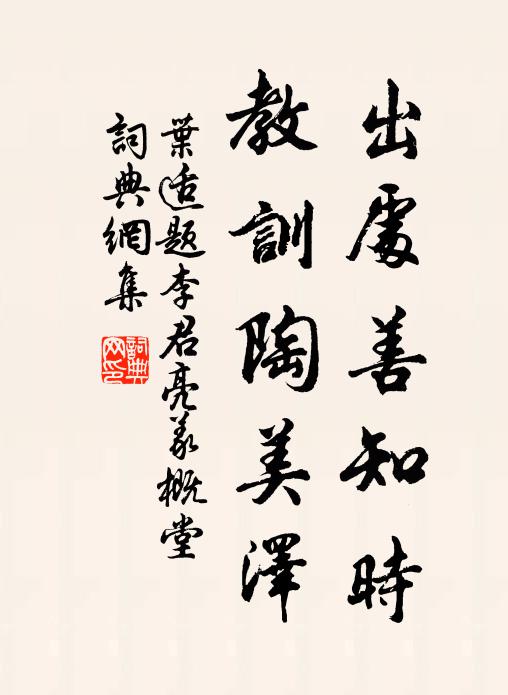 出處善知時
教訓陶美澤
葉适題李君亮義概堂
詞典網集
詞典
网印